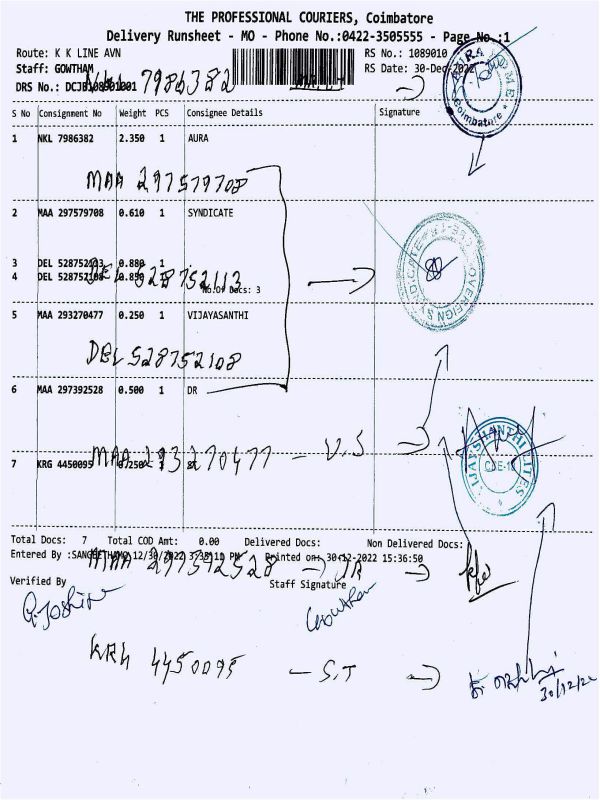 THE PROFESSIONAL COURIERS, Coimbatore
Delivery Runsheet - MO - Phone No.:0422-3505555 - Page No.:1
Route: K K LINE AVN
RS No.: 1089010
Staff: GOWTHAM
RS Date: 30-Dec-2022
NKL 7986382
DRS No.: DCJB108901001
S No Consignment No Weight PCS Consignee Details Signature
1 NKL 7986382 2.350 1 AURA
MAA 297579708
2 MAA 297579708 0.610 1 SYNDICATE
3 DEL 528752113 0.880 1
4 DEL 528752108 0.850
DEL 528752113
No.Of Docs: 3
5 MAA 293270477 0.250 1 VIJAYASANTHI
DEL 528752108
6 MAA 297392528 0.500 1 DR
MAA 293270477 - V.S
7 KRG 4450095 0.250
Total Docs: 7 Total COD Amt: 0.00 Delivered Docs: Non Delivered Docs:
Entered By :SANGEETHAMO 12/30/2022 3:35:11 PM Printed on: 30-12-2022 15:36:50
MAA 297392528 DR
Verified By
Staff Signature
Gowtham
KRG 4450095 - S.T
30/12/22
Coimbatore